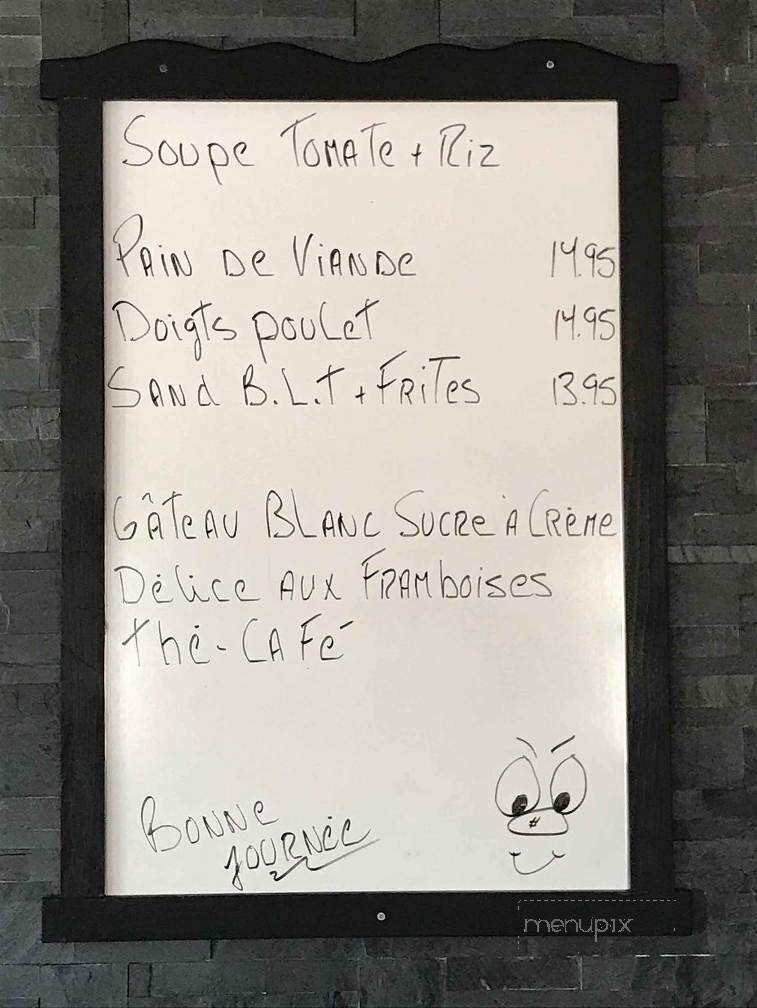 Soupe Tomate + Riz
Pain de Viande 14.95
Doigts poulet 14.95
Sand B.L.T + Frites 13.95
Gâteau Blanc Sucre à Crème
Délice aux Framboises
Thé - Café
Bonne
Journée
#
menupix